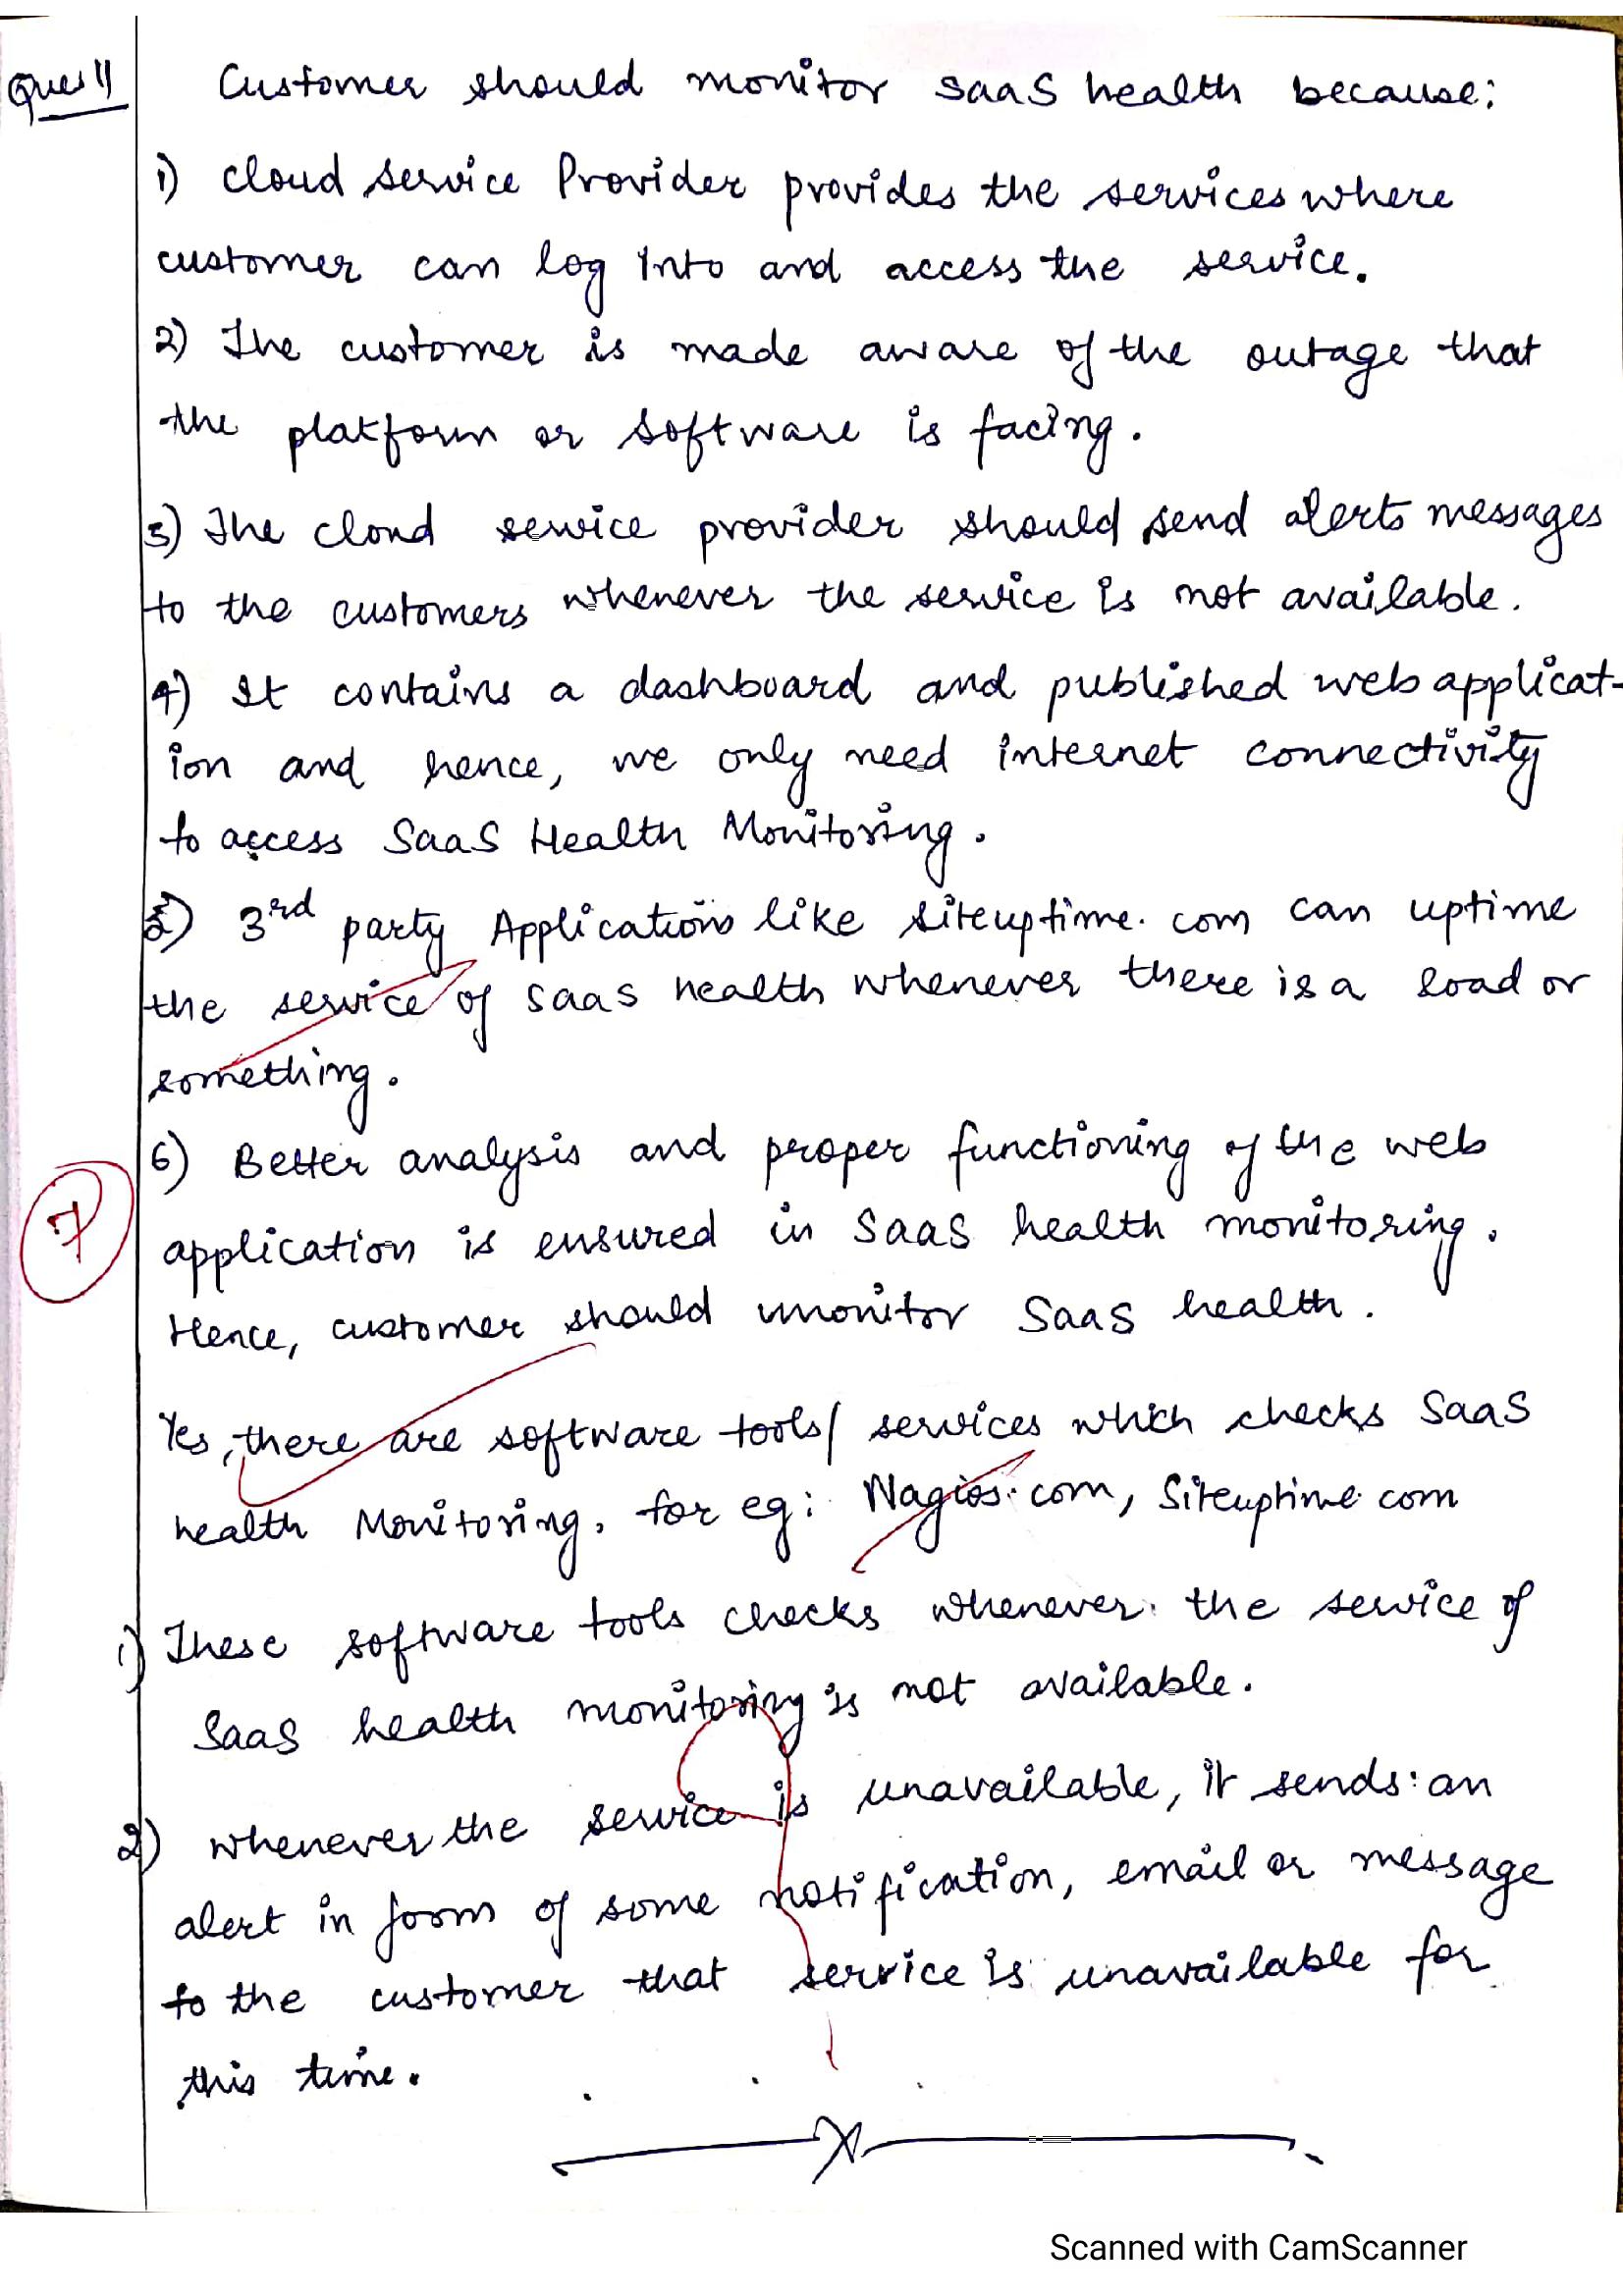 Ques 11 Customer should monitor SaaS health because:
1) cloud service Provider provides the services where
customer can log into and access the service.
2) The customer is made aware of the outage that
the platform or software is facing.
3) The cloud service provider should send alerts messages
to the customers whenever the service is not available.
4) It contains a dashboard and published web applicat-
ion and hence, we only need internet connectivity
to access SaaS Health Monitoring.
5) 3rd party Applications like siteuptime.com can uptime
the service of saas health whenever there is a load or
something.
6) Better analysis and proper functioning of the web
7
application is ensured in SaaS health monitoring.
Hence, customer should monitor SaaS health.
Yes, there are software tools/services which checks SaaS
health Monitoring. for eg: Nagios.com, Siteuptime.com
1) These software tools checks whenever the service of
SaaS health monitoring is not available.
2) whenever the service is unavailable, it sends an
alert in form of some notification, email or message
to the customer that service is unavailable for
this time.
Scanned with CamScanner